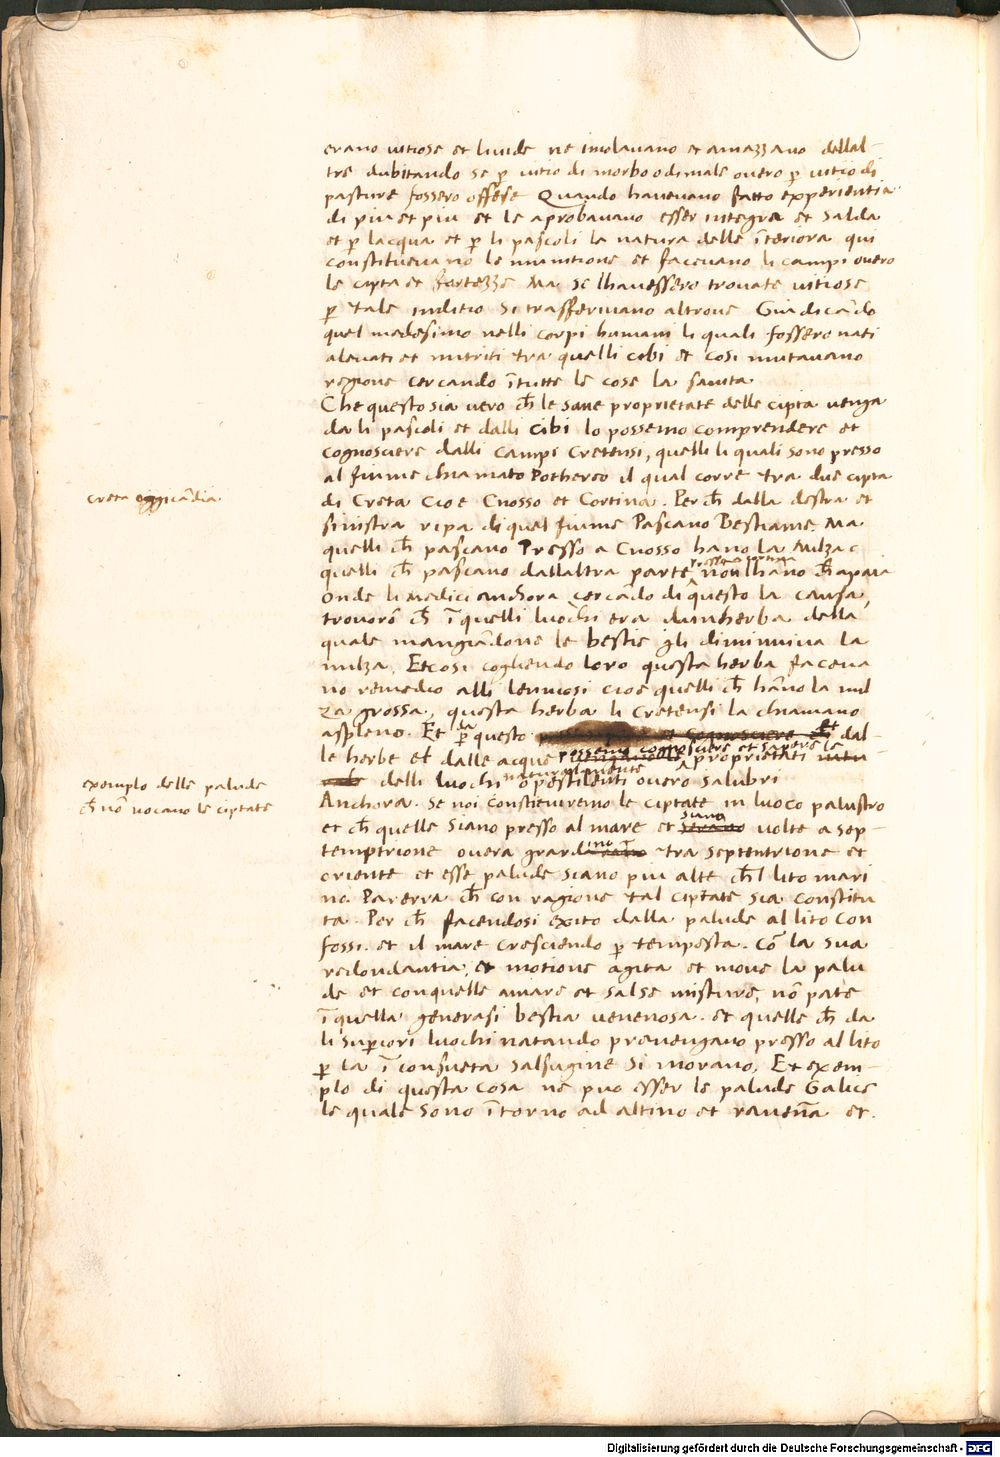 erano vitiose et livide ne imolavano et amazzano dellal-
tre dubitando se p vitio di morbo o di male overo p vitio di
pasture fossero offese Quando havevano fatto experientia
di piu et piu et le aprobavano esser integra et salda
et p lacqua et p li pascoli la natura delle īteriora qui
constituevano le munitione et facevano li campi overo
le cipta et fortezze Ma se lhavessero trovate vitiose
p tale inditio si trasferivano altrove Giudicādo
quel medesimo nelli corpi humani li quali fossero nati
alevati et nutriti tra quelli cibi et cosi mutavano
regione cercando ī tutte le cose la sanita
Che questo sia vero ch̄ le sane proprietate delle cipta venga
da li pascoli et dalli cibi lo possemo comprendere et
cognosciere dalli campi Cretensi, quelli li quali sono presso
al fiume chiamato Pothereo il qual corre tra due cipta
creta oggi cādia
di Creta Cioe Cnosso et Cortina. Per ch̄ dalla destra et
sinistra ripa di quel fiume Pascano Bestiame. Ma
quelli ch̄ pascano Presso a Cnosso hano la Milza e
presso a cortina
quelli ch̄ pascano dallaltra parte non lhano ch̄ apaia
Onde li Medici anchora cercādo di questo la causa,
trovorō ch̄ ī quelli luochi era dunherba della
quale mangiādone le bestie gli diminuiva la
milza. Et cosi cogliendo loro questa herba faceva
no remedio alli lenuosi cioe quelli ch̄ hāno la mil
za grossa, questa herba li Cretensi la chiamano
aspleno. Et p questo et cognosciere dal-
la et
le herbe et dalle acque proprietati
possemo cognosciere et sapere le
delli luochi o pestilenti overo salubri
naturalmente
exemplo delle palude
ch̄ nō nocano le ciptate
Anchora. Se noi constieuiremo le ciptate in luoco palustro
et ch̄ quelle siano presso al mare et serano volte a sep-
siano
temptrione overa grardino tra septentrione et
oriente et esse palude siano piu alte ch̄l lito mari
no. Paverra ch̄ con ragione tal ciptate sia constitu
ta. Per ch̄ facendosi exito dalla palude al lito con
fossi. et il mare cresciendo p tempesta. Cō la sua
redondantia, et motione agita et move la palu
de et con quelle amare et salse misture, nō pate
ī quella generasi bestia venenosa. et quelle ch̄ da
li supiori luochi natando prevengano presso al lito
p la ī consueta salsugine si morano. Et exem-
plo di questa cosa ne puo esser le palude Galice
le quale sono ītorno ad altino et ravenā et.
Digitalisierung gefördert durch die Deutsche Forschungsgemeinschaft - DFG